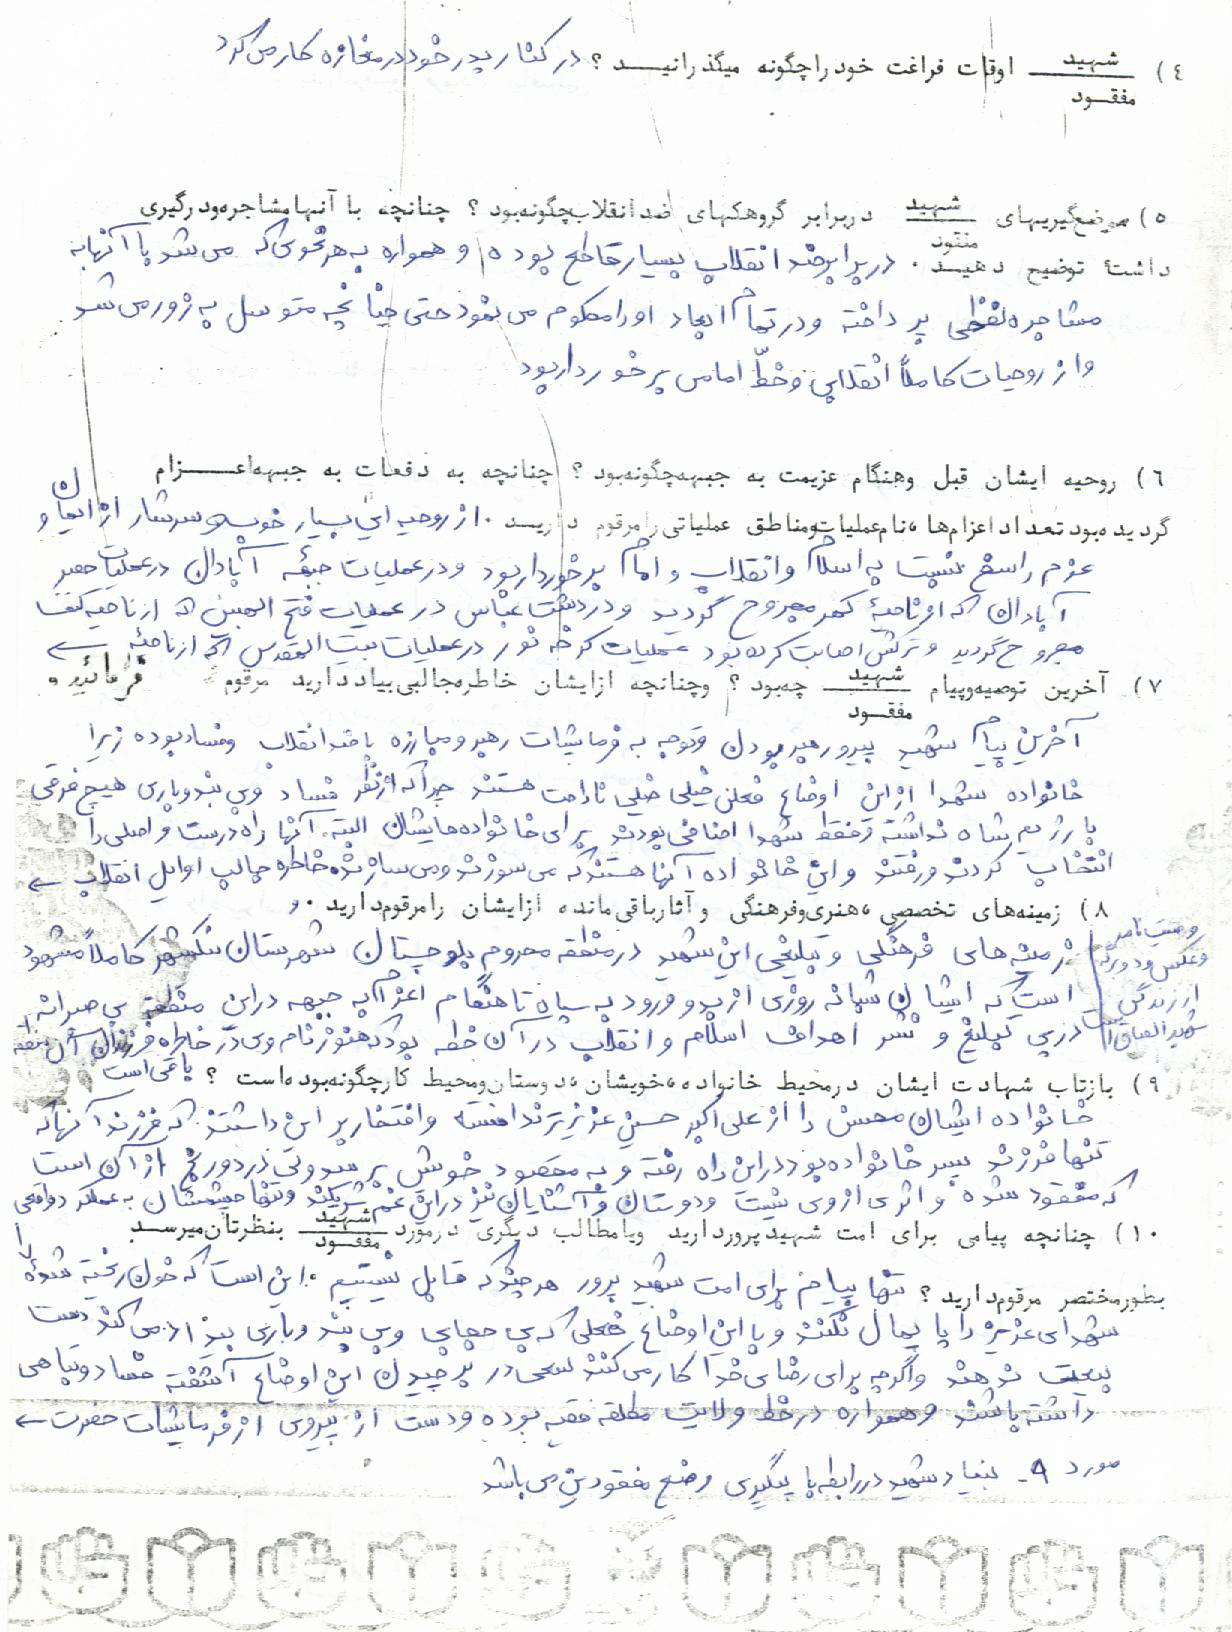 ۴) شهید / مفقود اوقات فراغت خود را چگونه میگذرانید ؟ در کنار پدر خود در مغازه کار می کرد
۵) موضع‌گیریهای شهید / مفقود در برابر گروهکهای ضد انقلاب چگونه بود ؟ چنانچه با آنها مشاجره و درگیری
داشته توضیح دهید . در برابر ضد انقلاب بسیار قاطع بوده و همواره به هر نحوی که می شد با آنها به
مشاجره لفظی پرداخته و در تمام ابعاد او را محکوم می نمود حتی چنانچه متوسل به زور می شد
و از روحیات کاملاً انقلابی و خطّ امامی برخوردار بود
۶) روحیه ایشان قبل و هنگام عزیمت به جبهه چگونه بود ؟ چنانچه به دفعات به جبهه اعزام
گردیده بود تعداد اعزام‌ها ، نام عملیات و مناطق عملیاتی را مرقوم دارید . از روحیه ای بسیار خوب و سرشار از ایمان و
عزم راسخ نسبت به اسلام و انقلاب و امام برخوردار بود و در عملیات جبهه آبادان در عملیات حصر
آبادان که از ناحیهٔ کمر مجروح گردید و در دشت عباس در عملیات فتح المبین که از ناحیه کتف
مجروح گردید و ترکش اصابت کرده بود عملیات کرخه نور در عملیات بیت المقدس که از ناحیه ←
۷) آخرین توصیه و پیام شهید / مفقود چه بود ؟ و چنانچه از ایشان خاطره جالبی بیاد دارید مرقوم فرمائید .
آخرین پیام شهید پیرو رهبر بودن و توجه به فرمایشات رهبر و مبارزه با ضد انقلاب و فساد بوده زیرا
خانواده شهدا از این اوضاع فعلی خیلی خیلی ناراحت هستند چرا که از نظر فساد و بی بند و باری هیچ فرقی
با رژیم شاه نداشته و فقط شهدا اضافی بودند برای خانواده هایشان البته آنها راه درست و اصلی را
انتخاب کردند و رفتند و این خانواده آنها هستند که می سوزند و می سازند خاطره جالب اوایل انقلاب ←
۸) زمینه‌های تخصصی ، هنری و فرهنگی و آثار باقی مانده از ایشان را مرقوم دارید .
وصیت نامه
و عکس و دوره
از زندگی
شهید الصاق
زمینه های فرهنگی و تبلیغی این شهید در منطقه محروم بلوچستان شهرستان نیکشهر کاملاً مشهود
است که ایشان شبانه روزی از بدو ورود به سپاه تا هنگام اعزام به جبهه در این منطقه بی صبرانه
در پی تبلیغ و نشر اهداف اسلام و انقلاب در آن خطه بود که هنوز نام وی در خاطره فرزندان آن منطقه
باقی است
۹) بازتاب شهادت ایشان در محیط خانواده ، خویشان ، دوستان و محیط کار چگونه بوده است ؟
خانواده ایشان محسن را از علی اکبر حسین عزیزتر ندانسته و افتخار بر این داشتند که فرزند آنها که
تنها فرزند پسر خانواده بود در این راه رفته و به مقصود خویش برسد ولی درد و رنج از آن است
که مفقود شده و اثری از وی نیست و دوستان و آشنایان نیز در این غم شریکند و تنها چشمشان به عملکرد واقعی
۱۰) چنانچه پیامی برای امت شهید پرور دارید و یا مطالب دیگری در مورد شهید / مفقود بنظرتان میرسد
بطور مختصر مرقوم دارید ؟ تنها پیام برای امت شهید پرور هر چند که قابل نیستیم . این است که خون ریخته شدهٔ
شهدای عزیز را پایمال نکنند و با این اوضاع فعلی که بی حجابی و بی بند و باری می کنند دست
بیعت ندهند و اگر چه برای رضای خدا کار می کنند سعی در برچیدن این اوضاع آشفته فساد و تباهی
داشته باشند و همواره در خط ولایت مطلقه فقیه بوده و دست از پیروی از فرمایشات حضرت ←
مورد ۹ـ بنیاد شهید در رابطه با پیگیری وضع مفقودین می باشد